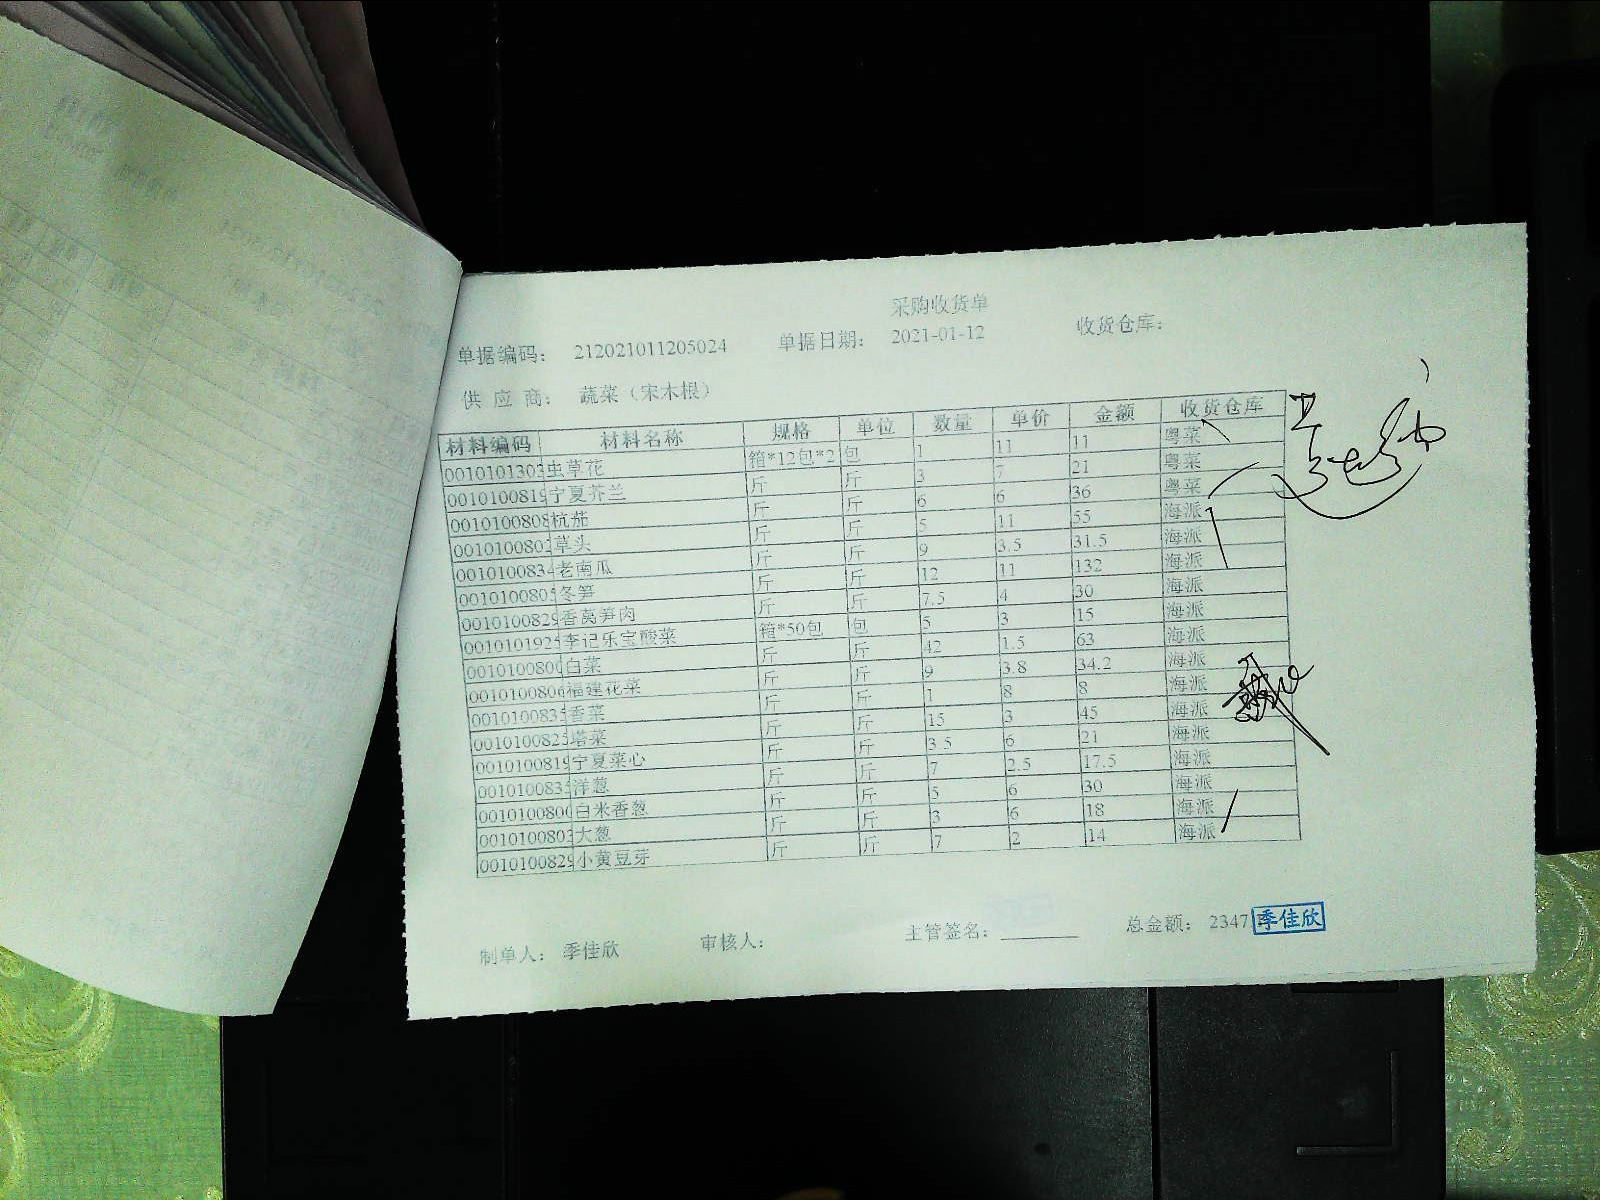 采购收货单
单据编码： 212021011205024 单据日期： 2021-01-12 收货仓库：
供 应 商： 蔬菜（宋木根）
材料编码 材料名称 规格 单位 数量 单价 金额 收货仓库
0010101303 虫草花 箱*12包*2 包 1 11 11 粤菜
0010100819 宁夏芥兰 斤 斤 3 7 21 粤菜
0010100808 杭茄 斤 斤 6 6 36 粤菜
0010100802 草头 斤 斤 5 11 55 海派
0010100834 老南瓜 斤 斤 9 3.5 31.5 海派
0010100805 冬笋 斤 斤 12 11 132 海派
0010100829 香莴笋肉 斤 斤 7.5 4 30 海派
0010101925 李记乐宝酸菜 箱*50包 包 5 3 15 海派
0010100800 白菜 斤 斤 42 1.5 63 海派
0010100806 福建花菜 斤 斤 9 3.8 34.2 海派
0010100835 香菜 斤 斤 1 8 8 海派
0010100825 塔菜 斤 斤 15 3 45 海派
0010100819 宁夏菜心 斤 斤 3.5 6 21 海派
0010100835 洋葱 斤 斤 7 2.5 17.5 海派
0010100800 白米香葱 斤 斤 5 6 30 海派
0010100803 大葱 斤 斤 3 6 18 海派
0010100829 小黄豆芽 斤 斤 7 2 14 海派
制单人： 季佳欣 审核人： 主管签名： 总金额： 2347 季佳欣